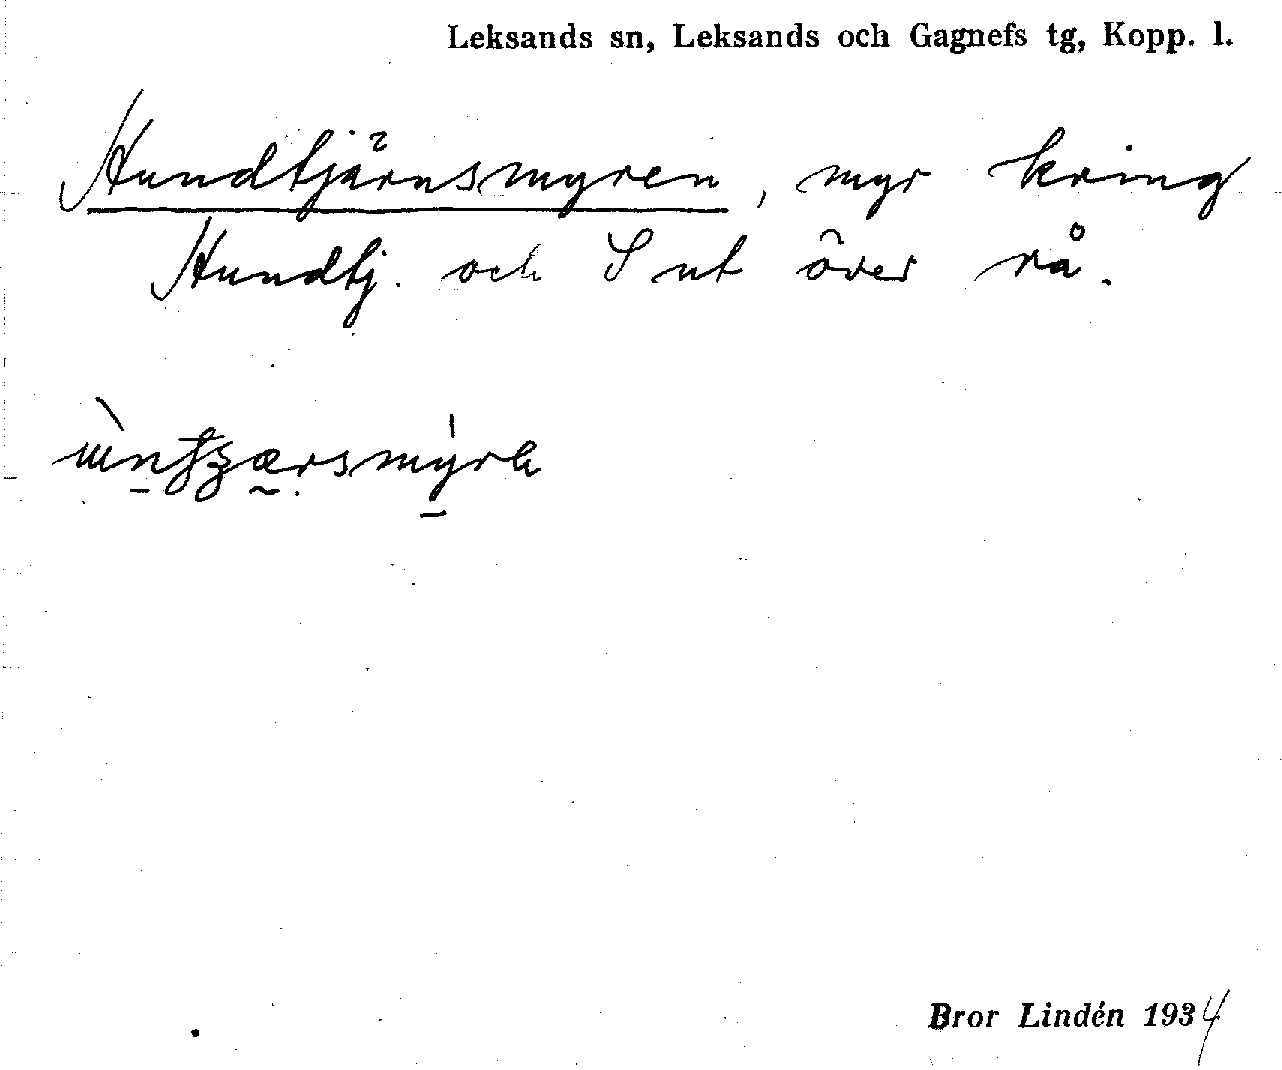 Leksands sn, Leksands och Gagnefs tg, Kopp. l.
Hundtjärnsmyren, myr kring
Hundtj. och S ut över rå.
Bror Lindén 1934